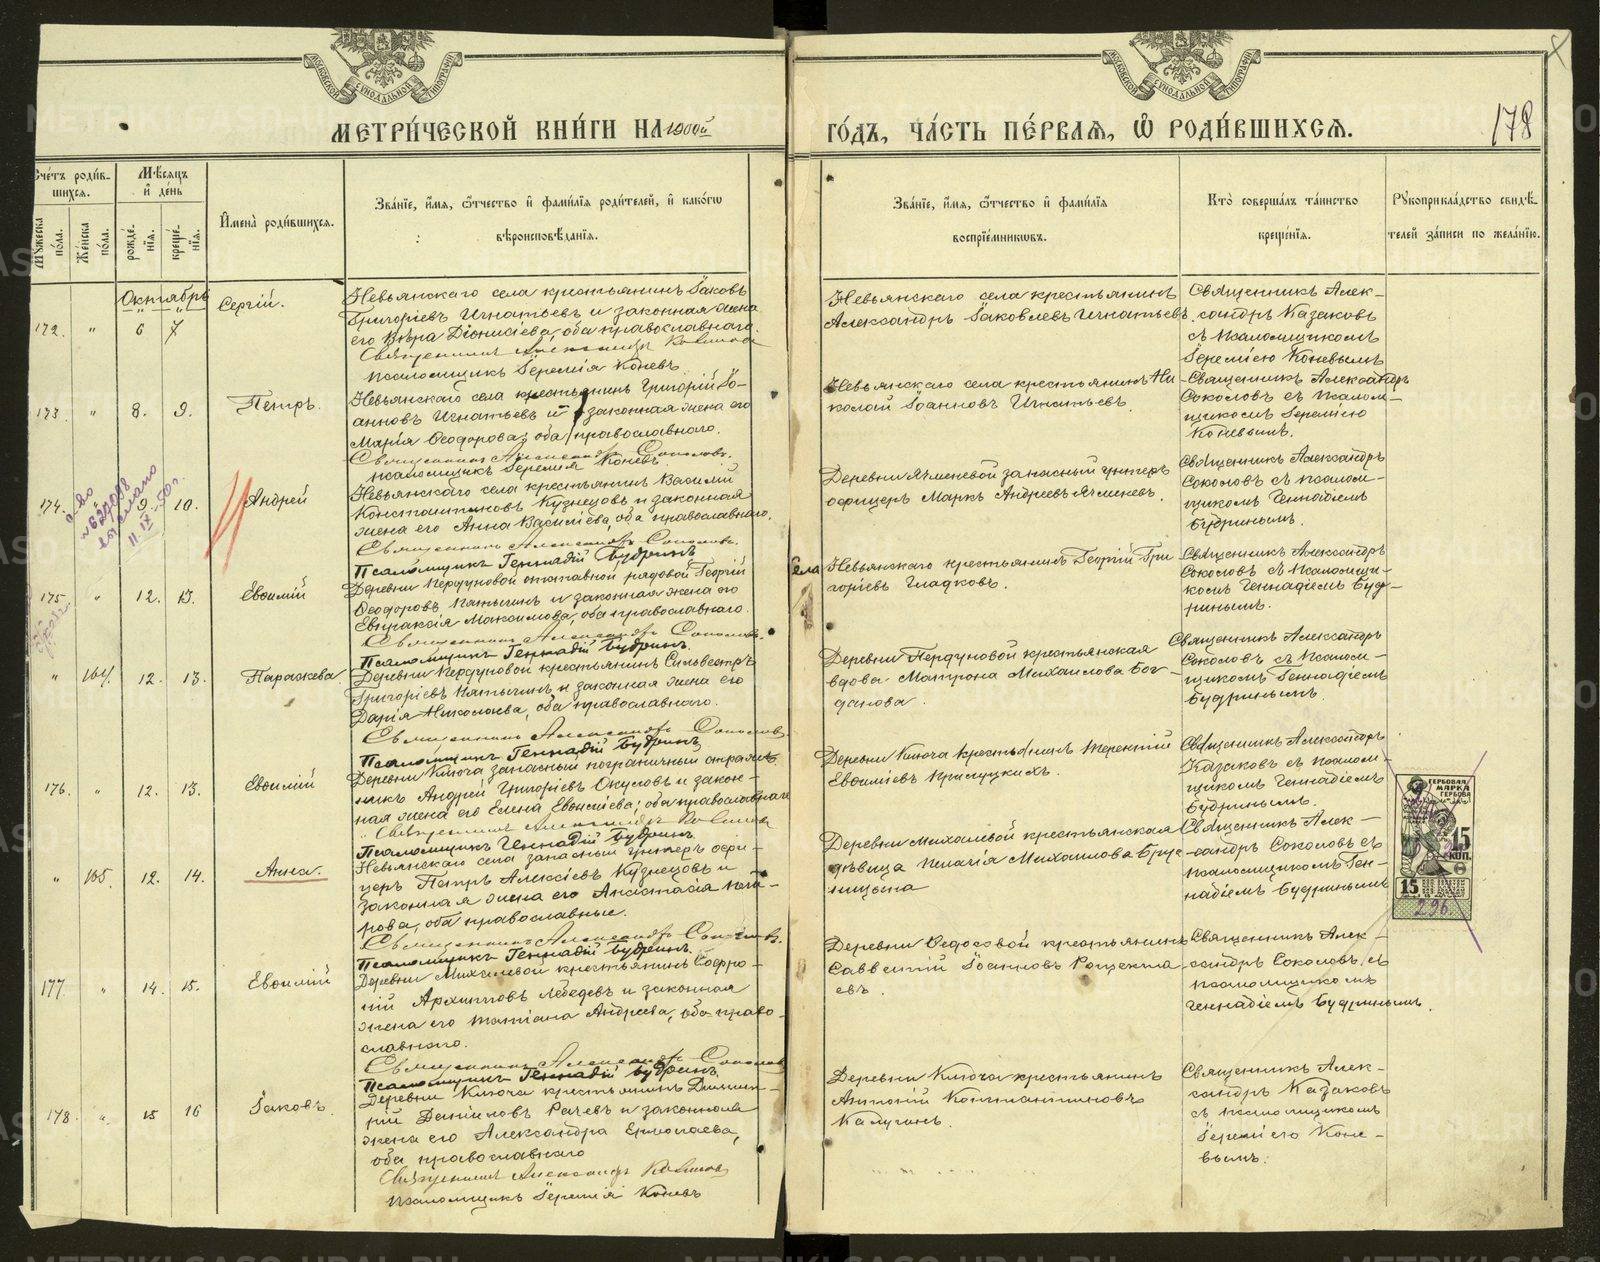 МЕТРИ́ЧЕСКОЙ КНИ́ГИ НА 1900й ГО́ДЪ, ЧА́СТЬ ПЕ́РВАЯ, Ѡ РОДИ́ВШИХСЯ.
178
Счетъ роди́вшихся.
Мѣсяцъ и день
Мужеска по́ла.
Же́нска по́ла.
рожде́нія.
креще́нія.
Имена роди́вшихся.
Зва́ніе, и́мя, ѻ́тчество и фами́лія роди́телей, и како́гѡ
вѣроисповѣ́данія.
Зва́ніе, и́мя, ѻ́тчество и фами́лія
воспрїе́мникѡвъ.
Кто̀ соверша́лъ та́инство
креще́нія.
Рꙋкоприкла́дство свидѣ́-
телей за́писи по жела́нію.
Октябрь
172. " 6 7
Сергій.
Невьянскаго села крестьянинъ Іаковъ
Григоріевъ Игнатьевъ и законная жена
его Вѣра Діонисіева, оба православнаго.
Священникъ Александръ Казаковъ
Псаломщикъ Іеремія Коневъ.
Невьянскаго села крестьянинъ
Александръ Іаковлевъ Игнатьевъ.
Священникъ Алек-
сандръ Казаковъ
съ псаломщикомъ
Іереміею Коневымъ
173 " 8. 9.
Петръ.
Невьянскаго села крестьянинъ Григорій Іо-
анновъ Игнатьевъ и законная жена его
Марія Ѳеодорова, оба православнаго.
Священникъ Александръ Соколовъ.
Псаломщикъ Іеремія Коневъ.
Невьянскаго села крестьянинъ Ни-
колай Іоанновъ Игнатьевъ.
Священникъ Александръ
Соколовъ съ псалом-
щикомъ Іереміею
Коневымъ.
174. 9. 10.
11.IX-50г.
Андрей
Невьянскаго села крестьянинъ Василій
Константиновъ Кузнецовъ и законная
жена его Анна Василіева, оба православнаго.
Священникъ Александръ Соколовъ.
Псаломщикъ Геннадій Будринъ
Деревни Ячменевой запасный унтеръ
офицеръ Маркъ Андреевъ Ячменевъ.
Священникъ Александръ
Соколовъ съ псалом-
щикомъ Геннадіемъ
Будринымъ.
175 " 12. 13.
Евѳимій
Деревни Пердуновой отставной рядовой Георгій
Ѳеодоровъ Пятыгинъ и законная жена его
Евпраксія Максимова, оба православнаго.
Священникъ Александръ Соколовъ.
Псаломщикъ Геннадій Будринъ.
села Невьянскаго крестьянинъ Георгій Гри-
горіевъ Гладковъ.
Священникъ Александръ
Соколовъ съ псаломщи-
комъ Геннадіемъ Буд-
ринымъ.
" 164. 12. 13.
Параскева
Деревни Пердуновой крестьянинъ Сильвестръ
Григоріевъ Пятыгинъ и законная жена его
Дарія Николаева, оба православнаго.
Священникъ Александръ Соколовъ
Псаломщикъ Геннадій Будринъ
Деревни Пердуновой крестьянская
вдова Матрона Михаилова Бог-
данова.
Священникъ Александръ
Соколовъ съ псалом-
щикомъ Геннадіемъ
Будринымъ
176. " 12. 13.
Евѳимій
Деревни Ключа запасный пограничный страж-
никъ Андрей Григоріевъ Окуловъ и закон-
ная жена его Елена Евѳиміева; оба православнаго
Священникъ Александръ Казаковъ
Псаломщикъ Геннадій Будринъ
Деревни Ключа крестьянинъ Терентій
Евѳиміевъ Крысуцкихъ.
Священникъ Александръ
Казаковъ съ псалом-
щикомъ Геннадіемъ
Будринымъ.
" 165. 12. 14.
Анна.
Невьянскаго села запасный унтеръ офи-
церъ Петръ Алексіевъ Кузнецовъ и
законная жена его Анастасія
рова, оба православные.
Священникъ Александръ Соколовъ.
Псаломщикъ Геннадій Будринъ.
Деревни Михалевой крестьянская
дѣвица Пелагія Михаилова Брус-
ницына
Священникъ Алек-
сандръ Соколовъ съ
псаломщикомъ Ген-
надіемъ Будринымъ
ГЕРБОВАЯ
МАРКА
15
КОП.
15
296
177. " 14. 15.
Евѳимій
Деревни Михалевой крестьянинъ Софро-
ній Архиповъ Лебедевъ и законная
жена его Татіана Андреева, оба право-
славнаго.
Священникъ Александръ Соколовъ
Псаломщикъ Геннадій Будринъ
Деревни Ѳедосовой крестьянинъ
Савватій Іоанновъ Рощекта-
евъ.
Священникъ Алек-
сандръ Соколовъ съ
псаломщикомъ
Геннадіемъ Будринымъ.
178. " 15 16
Іаковъ.
Деревни Ключа крестьянинъ Дмит-
рій Даніиловъ Рачевъ и законная
жена его Александра Ермолаева,
оба православнаго
Священникъ Александръ Казаковъ
Псаломщикъ Іеремія Коневъ
Деревни Ключа крестьянинъ
Антоній Константиновъ
Калугинъ.
Священникъ Алек-
сандръ Казаковъ
съ псаломщикомъ
Іереміею Коне-
вымъ.